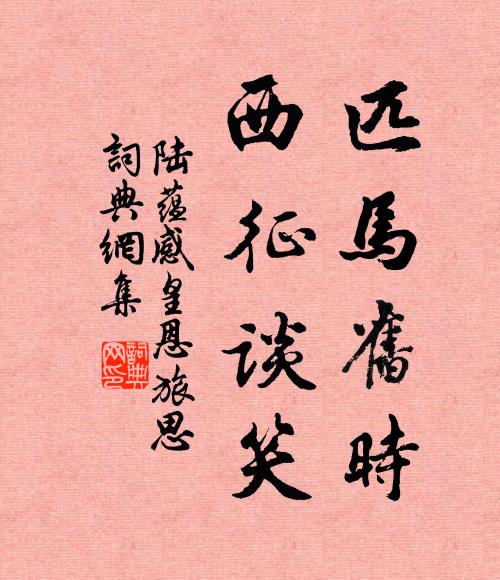 匹馬舊時
西征談笑
陸蕴感皇恩旅思
詞典網集
詞典
网印